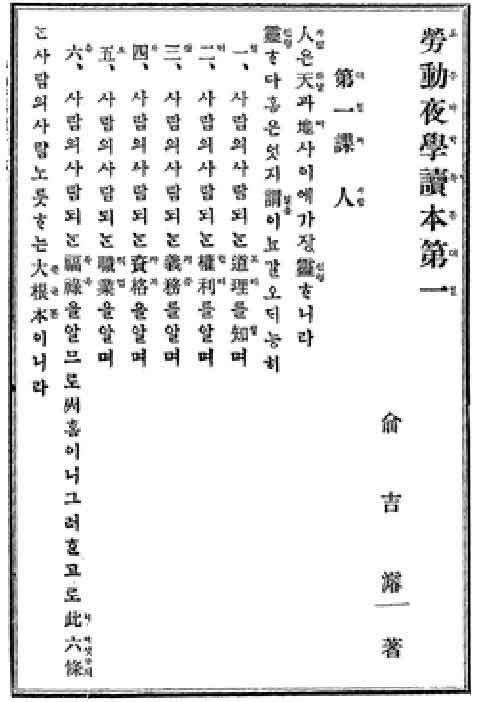 勞動夜學讀本第一
兪吉濬 著
第一課 人
人은天과地사이에가장靈ᄒᆞ니라
靈ᄒᆞ다홈은엇지謂이뇨갈오ᄃᆡ능히
一、사람의사람되ᄂᆞᆫ道理를知며
二、사람의사람되ᄂᆞᆫ權利를알며
三、사람의사람되ᄂᆞᆫ義務를알며
四、사람의사람되ᄂᆞᆫ資格을알며
五、사람의사람되ᄂᆞᆫ職業을알며
六、사람의사람되ᄂᆞᆫ福祿을알므로써홈이니그러ᄒᆞᆫ고로此六條
ᄂᆞᆫ사람의사람노릇ᄒᆞ는大根本이니라